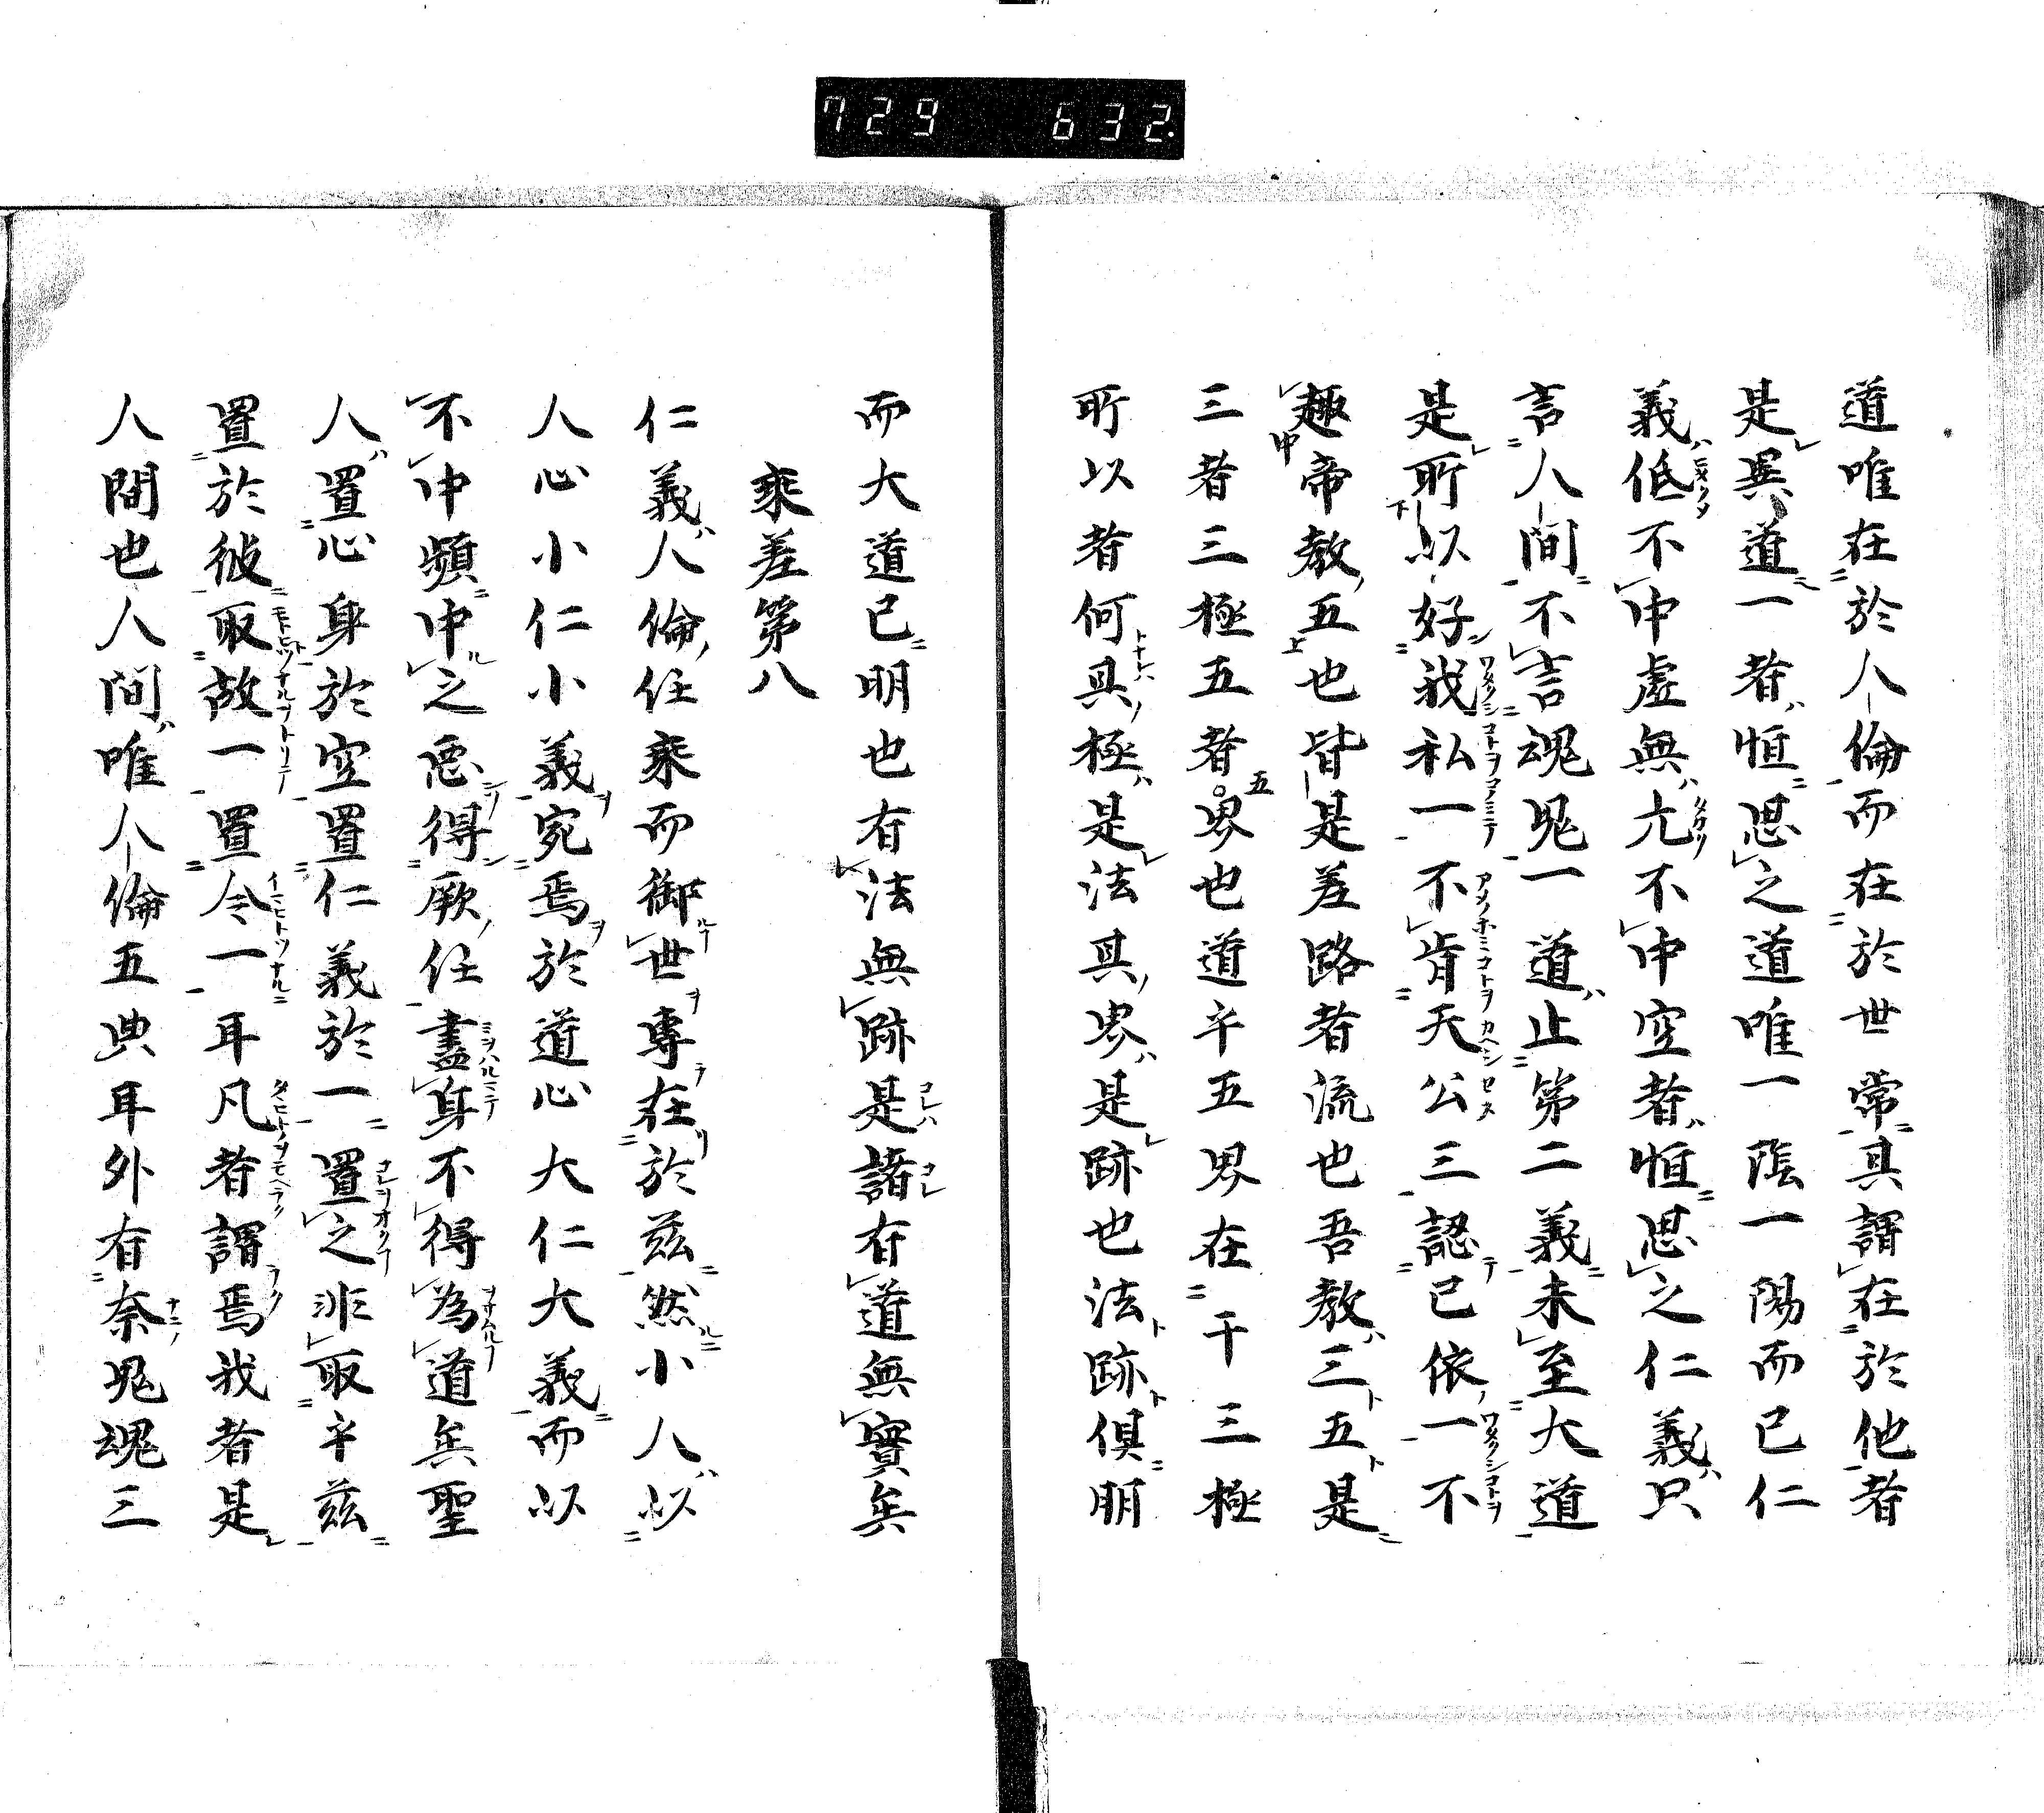 729 632.
道唯在於人倫而在於世常其謂在於他者
是異道一者恒思之道唯一陰一陽而已仁
義低不中虛無尢不中空者恒思之仁義只
言人間不言魂鬼一道止第二義未至大道
是所以好我私一不肯天公三認已依一不
趣帝教五也皆是差路者流也吾教三五是
三者三極五者界也道辛五界在干三極
所以者何具極是法其界是跡也法跡俱明
而大道已明也有法無跡是諸有道無實矣
乘差第八
仁義人倫任乘而御世專在於兹然小人以
人心小仁小義宛焉於道心大仁大義而以
不中頻中之惡得厥任盡身不得為道矣聖
人置心身於空置仁義於一置之非取辛兹
置於彼取故一置令一耳凡者謂焉我者是
人間也人間唯人倫五典耳外有奈鬼魂三